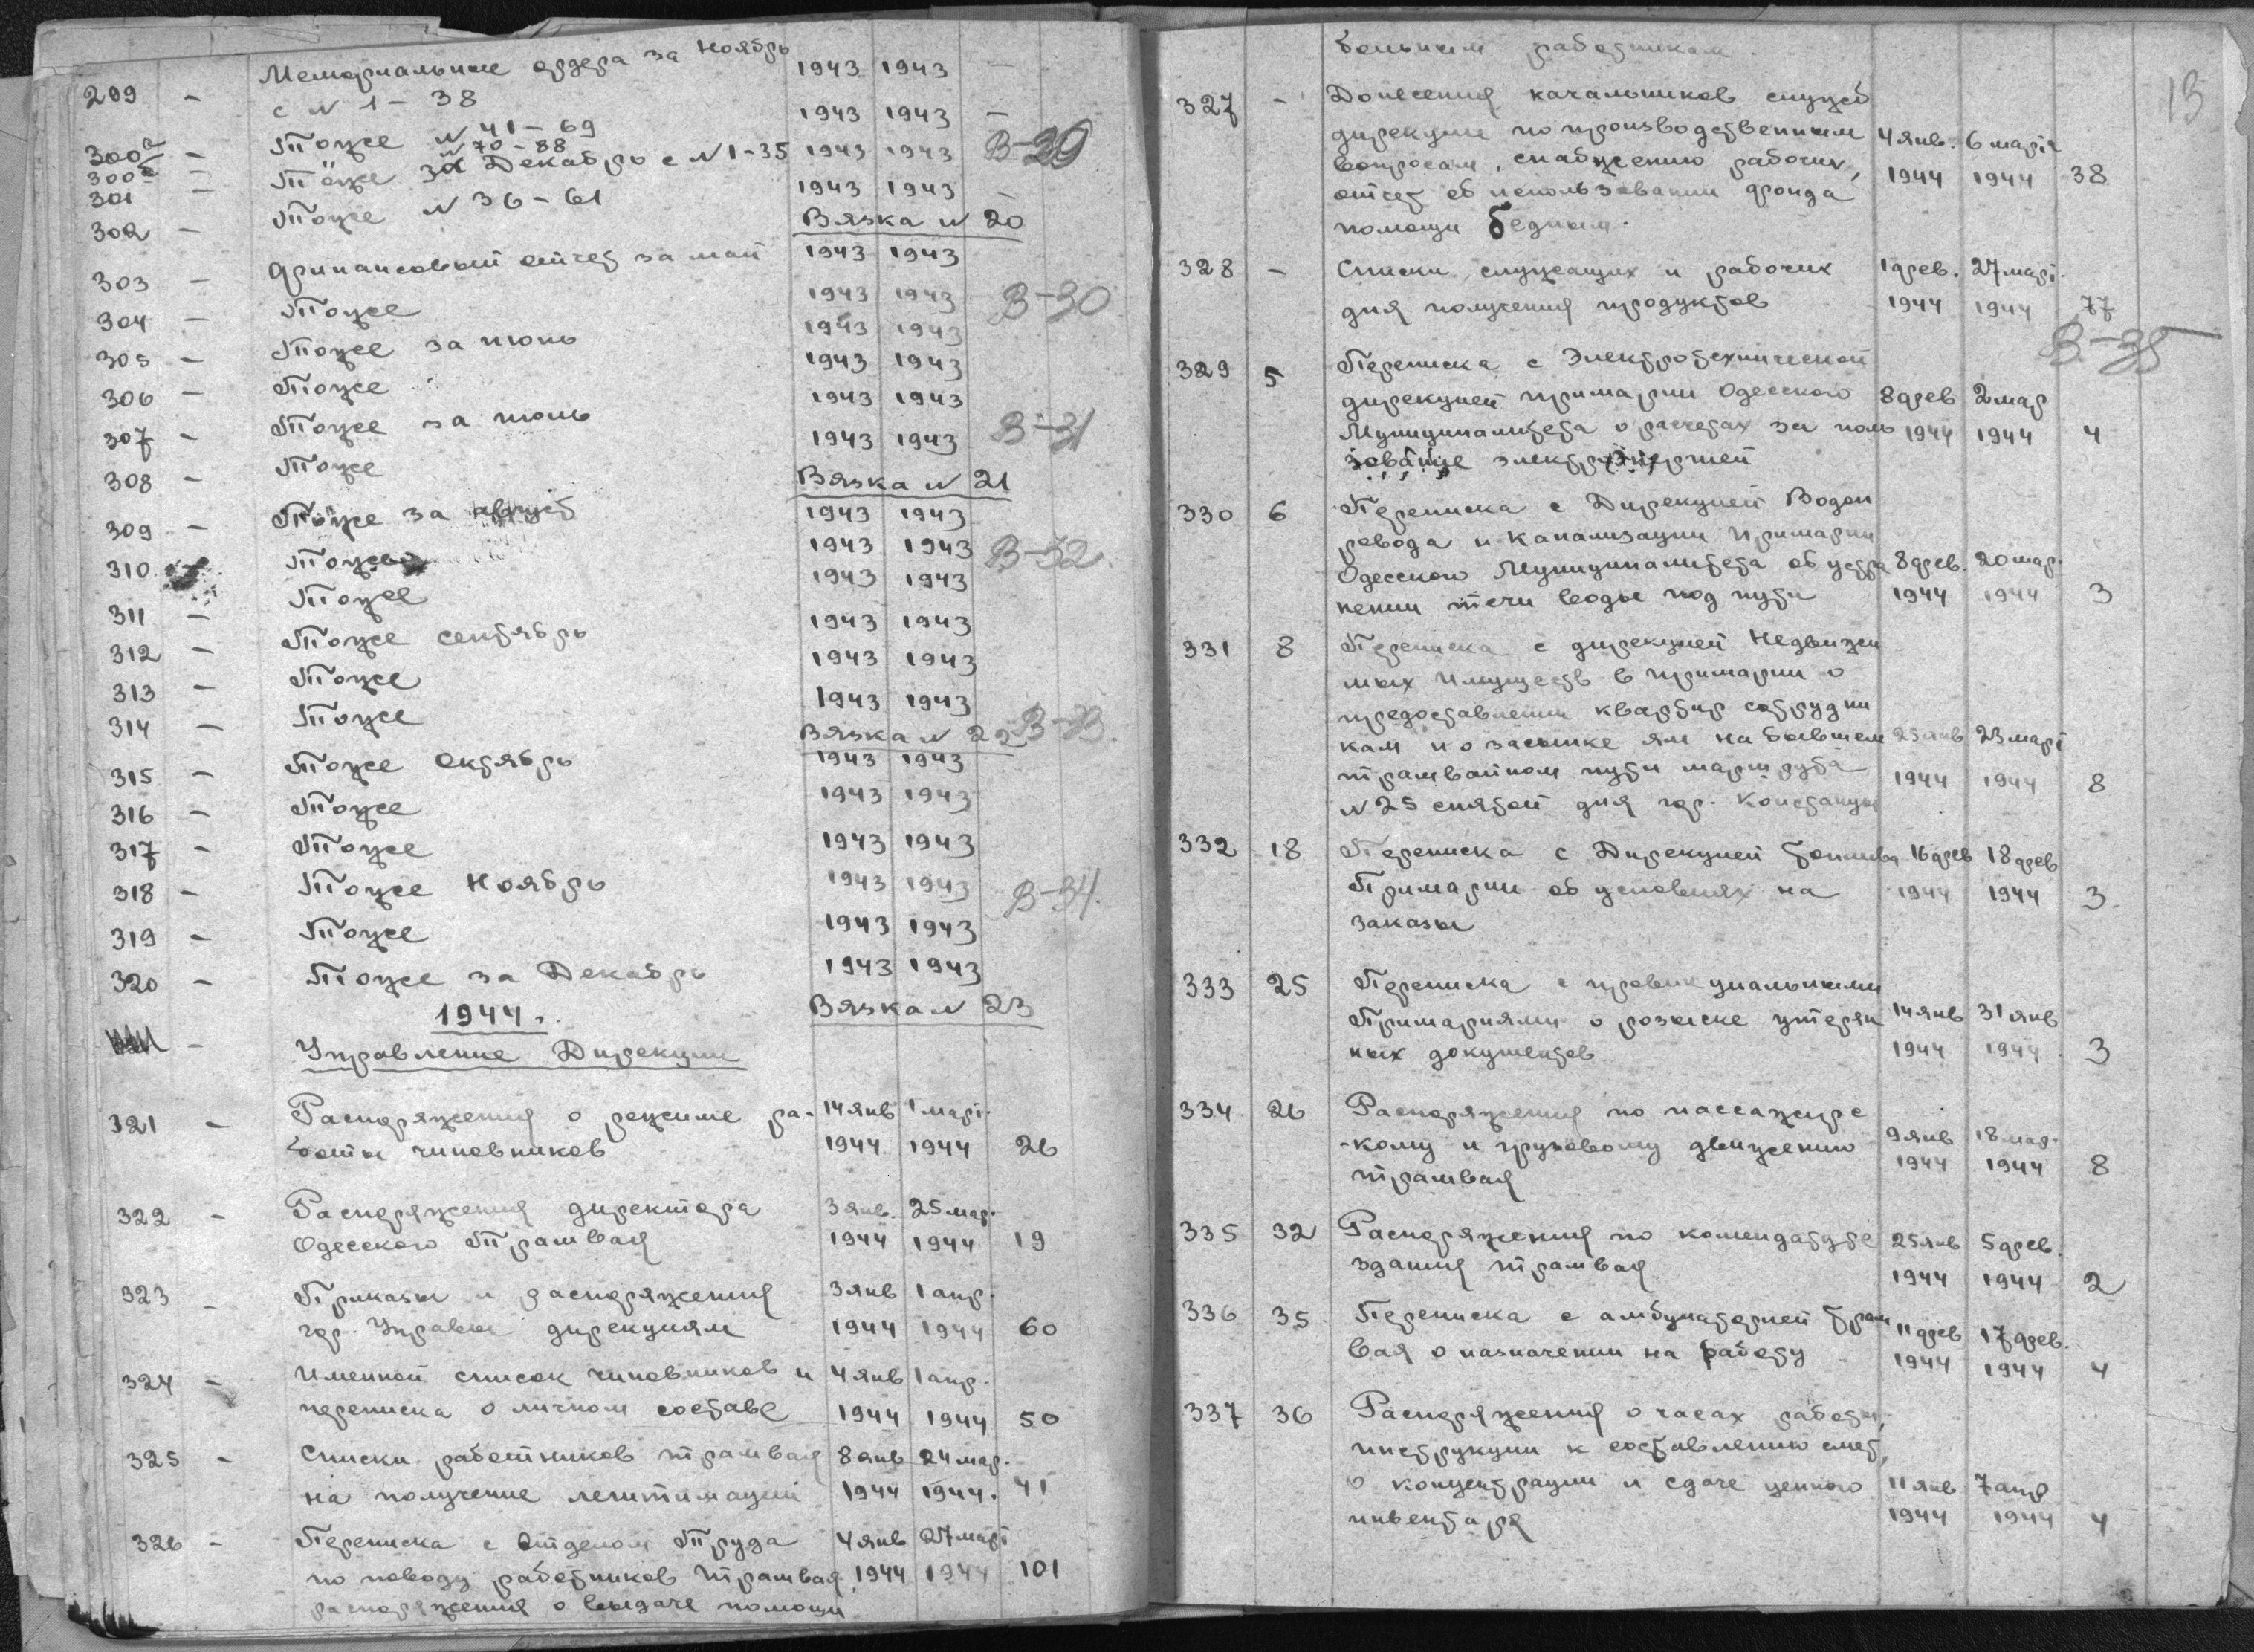 209 - Мемориальные ордера за Ноябрь 1943 1943 -
с N 1 - 38
300а - Тоже N 41 - 69 1943 1943 -
300б - " N 70 - 88
301 - Тоже за Декабрь с N 1-35 1943 1943 В-29
302 - Тоже N 36 - 61 1943 1943 -
Вязка N 20
303 - Финансовый отчет за май 1943 1943
304 - Тоже 1943 1943 В-30
305 - Тоже за июнь 1943 1943
306 - Тоже 1943 1943
307 - Тоже за июль 1943 1943
308 - Тоже 1943 1943 В-31
Вязка N 21
309 - Тоже за август 1943 1943
310 Тоже 1943 1943 В-32.
311 - Тоже 1943 1943
312 - Тоже сентябрь 1943 1943
313 - Тоже 1943 1943
314 - Тоже 1943 1943
Вязка N 22 В-33.
315 - Тоже октябрь 1943 1943
316 - Тоже 1943 1943
317 - Тоже 1943 1943
318 - Тоже Ноябрь 1943 1943 В-34.
319 - Тоже 1943 1943
320 - Тоже за Декабрь 1943 1943
1944. Вязка N 23
Управление Дирекции
321 - Распоряжения о режиме ра- 14 янв 1 март.
боты чиновников 1944 1944 26
322 - Распоряжения директора 3 янв. 25 мар.
Одесского Трамвая 1944 1944 19
323 - Приказы и распоряжения 3 янв 1 апр.
гор. Управы дирекциям 1944 1944 60
324 - Именной список чиновников и 4 янв 1 апр.
переписка о личном составе 1944 1944 50
325 - Списки работников трамвая 8 янв 24 мар.
на получение легитимаций 1944 1944. 41
326 - Переписка с Отделом Труда 4 янв 27 март
по поводу работников Трамвая, 1944 1944 101
распоряжения о выдаче помощи
больным работникам.
13
327 - Донесения начальников служб
дирекции по производственным 4 янв. 6 марта
вопросам, снабжению рабочих, 1944 1944 38
отчет об использовании фонда
помощи бедным.
328 - Списки служащих и рабочих 1 фев. 27 март.
для получения продуктов 1944 1944 77
В-35
329 5 Переписка с Электротехнической
дирекцией примарии Одесского 8 фев 2 мар
Муниципалитета о расчетах за поль 1944 1944 4
зование электроэнергией
330 6 Переписка с Дирекцией Водоп
ровода и Канализации Примарии
Одесского Муниципалитета об устра 8 фев. 20 мар.
нении течи воды под пути 1944 1944 3
331 8 Переписка с дирекцией Недвижи
мых Имуществ в примарии о
предоставлении квартир сотрудни
кам и о засыпке ям на бывшем 25 янв 23 март
трамвайном пути маршрута 1944 1944 8
N 25 снятой для гор. Констанцы
332 18 Переписка с Дирекцией топлива 16 фев 18 фев
Примарии об условиях на 1944 1944 3
заказы
333 25 Переписка с провинциальными
Примариями о розыске утерян 14 янв 31 янв
ных документов 1944 1944 3
334 26 Распоряжения по пассажирс
-кому и грузовому движению 9 янв 18 мар.
трамвая 1944 1944 8
335 32 Распоряжения по комендатуре 25 янв 5 фев.
здания трамвая 1944 1944 2
336 35 Переписка с амбулаторией Трам 11 фев 17 фев.
вая о назначении на работу 1944 1944 4
337 36 Распоряжения о часах работы,
инструкции к составлению смет,
о концентрации и сдаче ценного 11 янв 7 апр
инвентаря 1944 1944 4